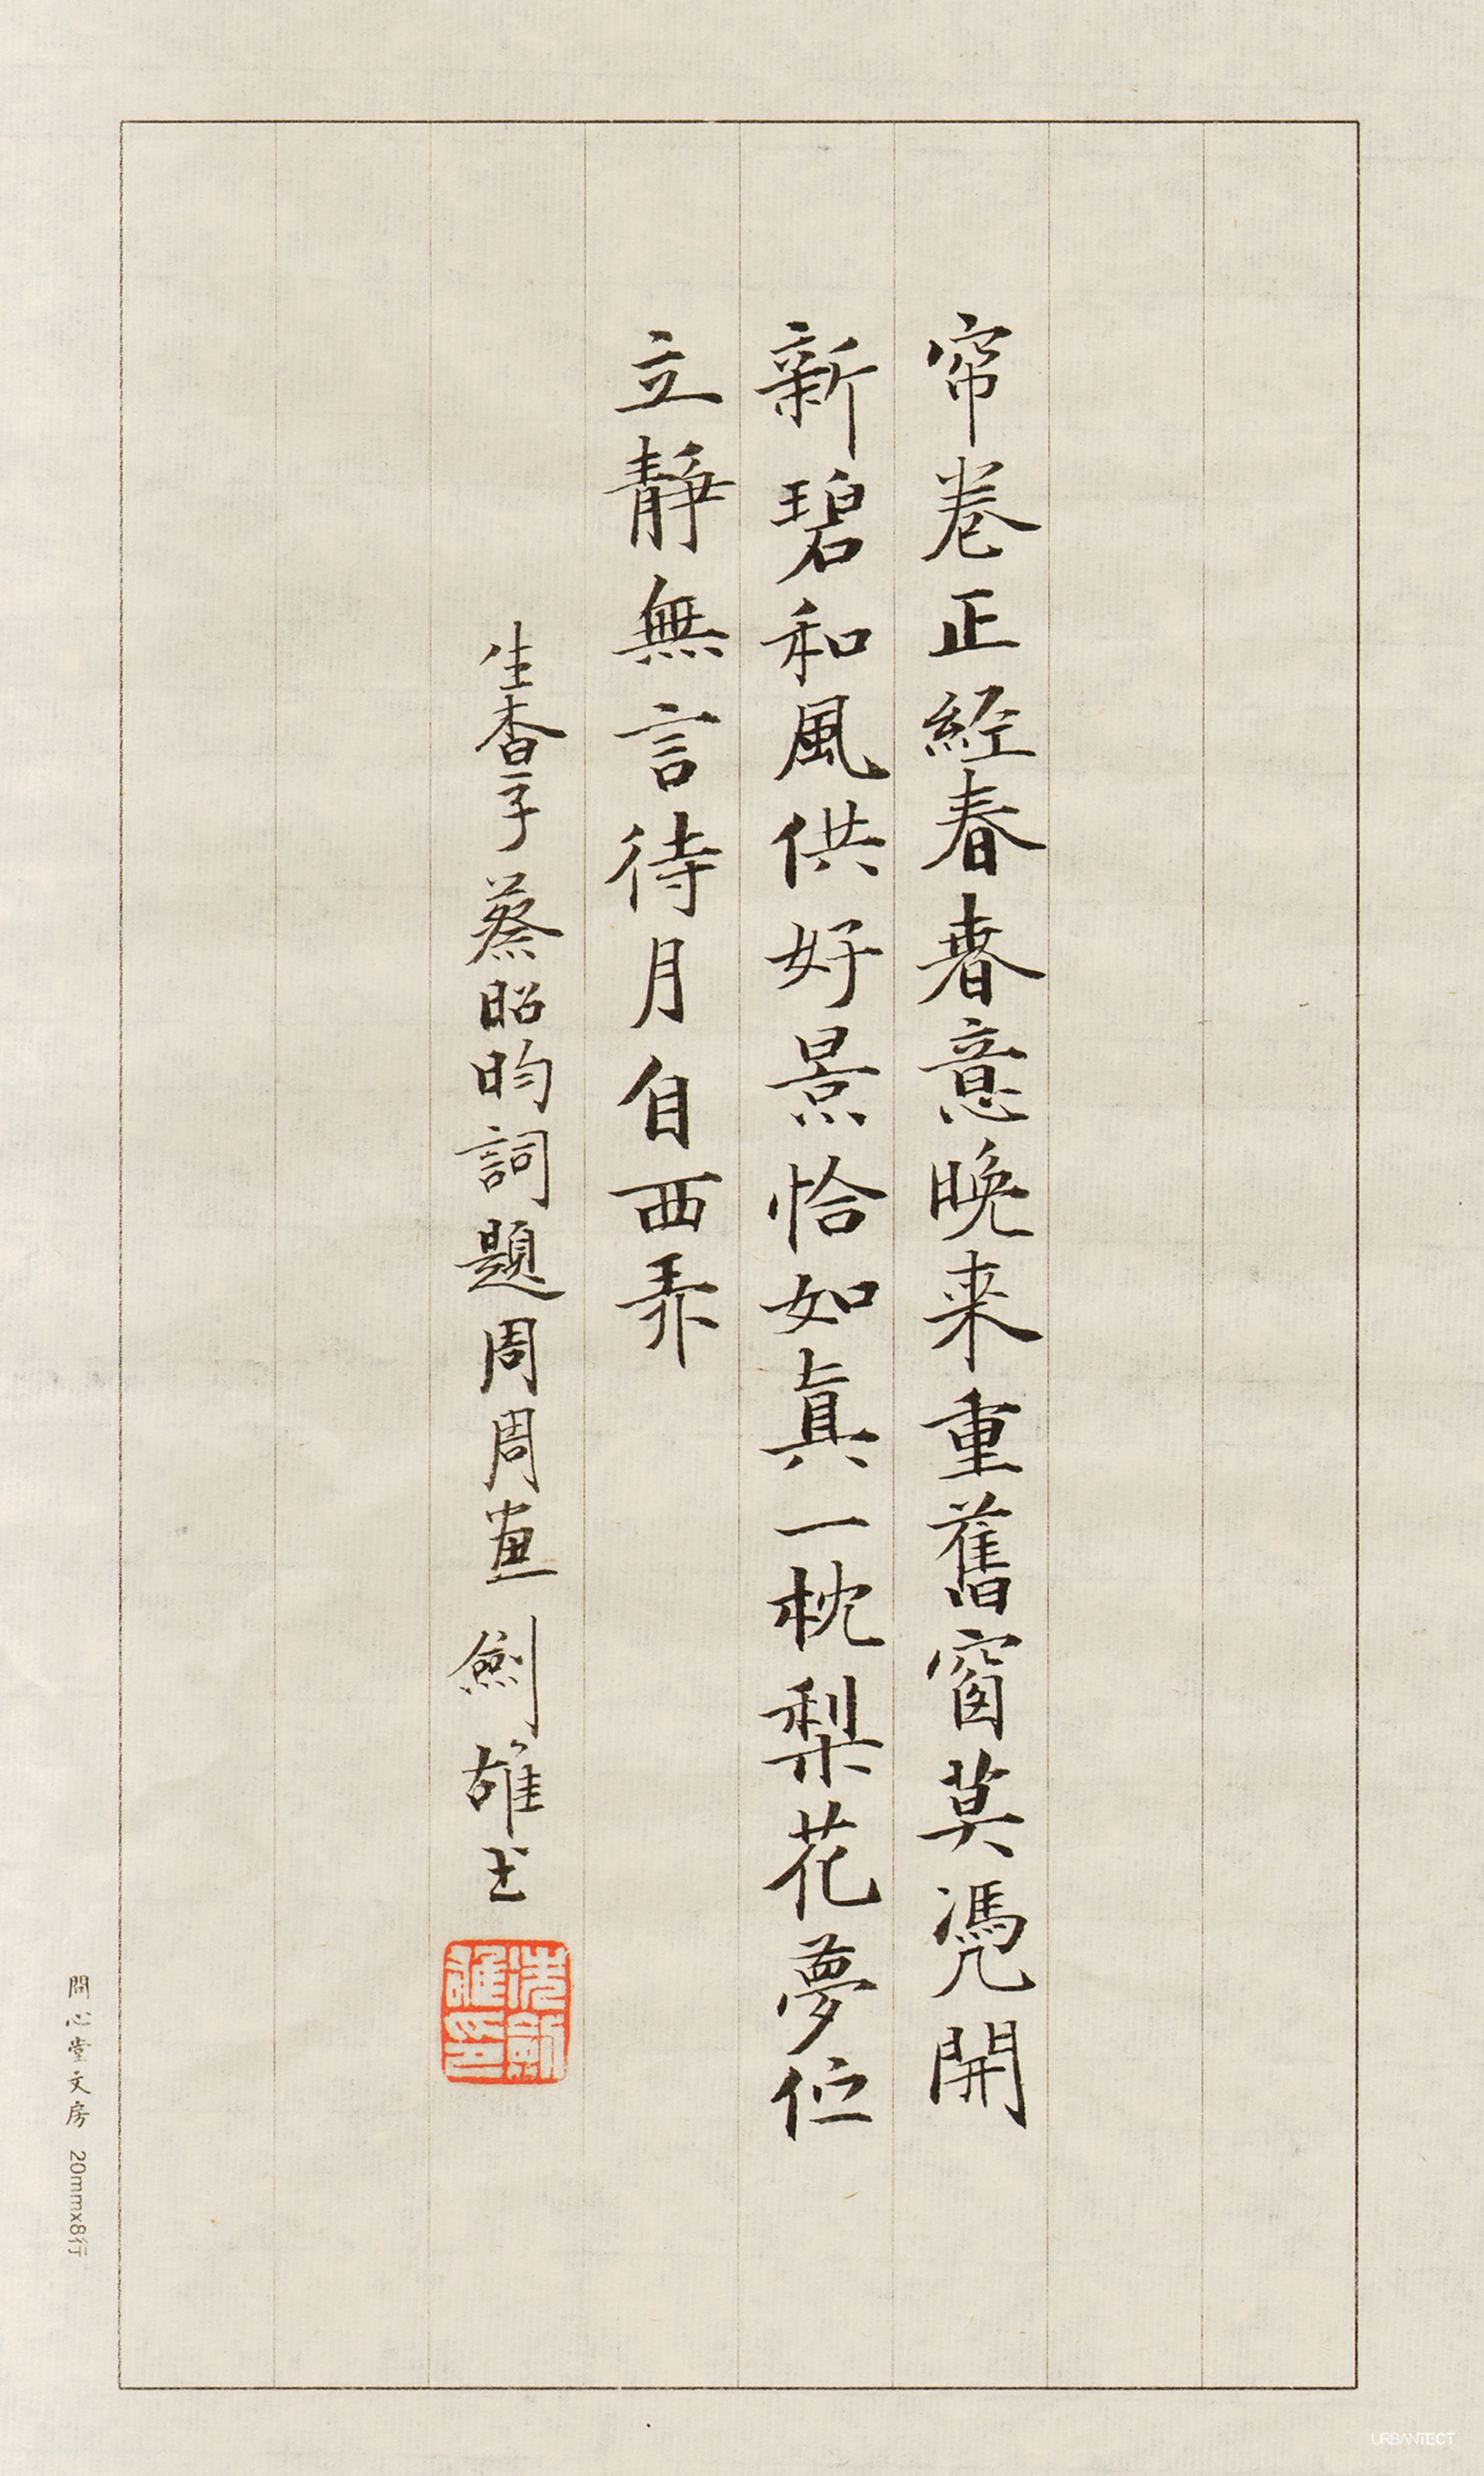 帘卷正經春春意晚来重舊窗莫憑開
新碧和風供好景恰如真一枕梨花夢位
立靜無言待月自西乘
生查子蔡昭昀詞題周周畫劍雄书
問心堂文房 20mmx8行
URBANTECT